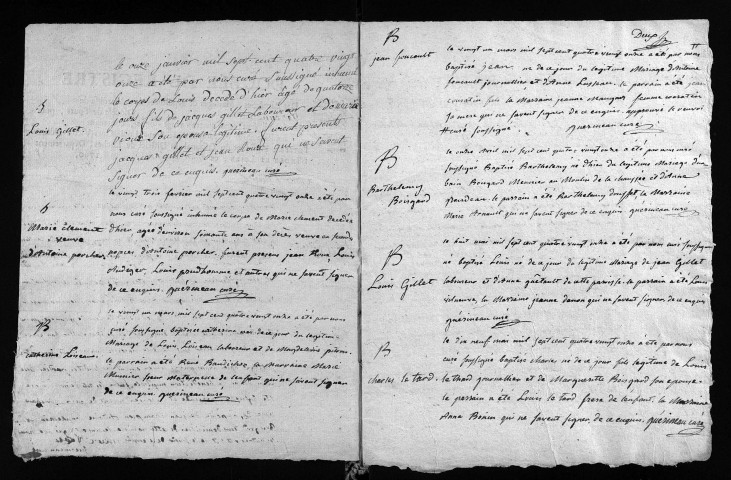 le onze janvier mil sept cent quatre vingt
onze a été par nous curé soussigné inhumé
le corps de Louis decedé d'hier agé de quatorze
jours fils de jacques gillet Laboureur et de marie
son epouse legitime. furent presents
jacques gillet et jean qui ne savent
signer de ce enquis. guerineau curé
S
Louis Gillet.
le vingt trois fevrier mil sept cent quatre vingt onze a été par
nous curé soussigné inhumé le corps de Marie clement decedée
d'hier, agée d'environ soixante ans à son decès veuve en secondes
nopces d'Antoine porcher, furent presens jean Louis
audeger, Louis prudhomme et autres qui ne savent signer
de ce enquis. guérineau curé
S
Marie clement
veuve
d'Antoine porcher.
le vingt un mars mil sept cent quatre vingt onze a été par nous
curé soussigné, baptisée catherine née de ce jour du legitime
Mariage de Louis Loiseau laboureur et de Magdelaine
le parrain a été René la Marraine Marie
Meunier soeur maternelle de l'enfant qui ne savent signer
de ce enquis guérineau curé
B
catherine Loiseau.
Deux
B
jean foucault
le vingt un mars mil sept cent quatre vingt onze a été par nous
baptisé jean né de ce jour du legitime Mariage d'Antoine
foucault journallier et d'Anne le parrain a été jean
la Marraine jeanne femme
qui ne savent signer de ce enquis, approuvé le renvoi
curé soussigné. guerineau curé
B
Barthelemy
Boisgard
le onze Avril mil sept cent quatre vingt onze a été par nous curé
soussigné Baptisé Barthelemy né d'hier du legitime Mariage
Boisgard Meunier au Moulin de la chaussée et d'Anne
le parrain a été Barthelemy la Marraine
Marie Arnault qui ne savent signer de ce enquis guerineau curé
B
Louis Gillet
le huit mai mil sept cent quatre vingt onze a été par nous curé soussigné
baptisé Louis né de ce jour du legitime Mariage de jean Gillet
laboureur et d'Anne de cette paroisse. le parrain a été Louis
villeneuve, la Marraine jeanne qui ne savent signer, de ce enquis
guérineau curé
B
charles le tard.
le dix neuf mai mil sept cent quatre vingt onze a été par nous
curé soussigné baptisé charles né de ce jour fils legitime de Louis
le tard journallier et de Marguerite Boisgard son epouse.
le parrain a été Louis le tard frere de l'enfant. la Marraine
Anne qui ne savent signer, de ce enquis, guérineau curé